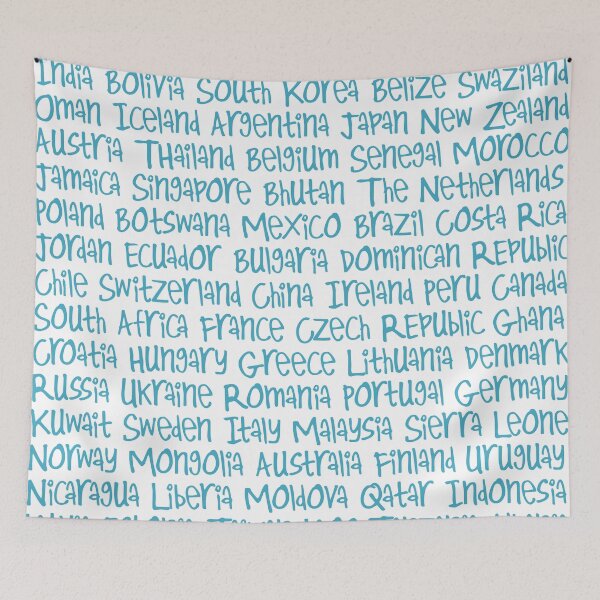 India Bolivia South Korea Belize Swaziland
Oman Iceland Argentina Japan New Zealand
Austria Thailand Belgium Senegal Morocco
Jamaica Singapore Bhutan The Netherlands
Poland Botswana Mexico Brazil Costa Rica
Jordan Ecuador Bulgaria Dominican Republic
Chile Switzerland China Ireland Peru Canada
South Africa France Czech Republic Ghana
Croatia Hungary Greece Lithuania Denmark
Russia Ukraine Romania Portugal Germany
Kuwait Sweden Italy Malaysia Sierra Leone
Norway Mongolia Australia Finland Uruguay
Nicaragua Liberia Moldova Qatar Indonesia